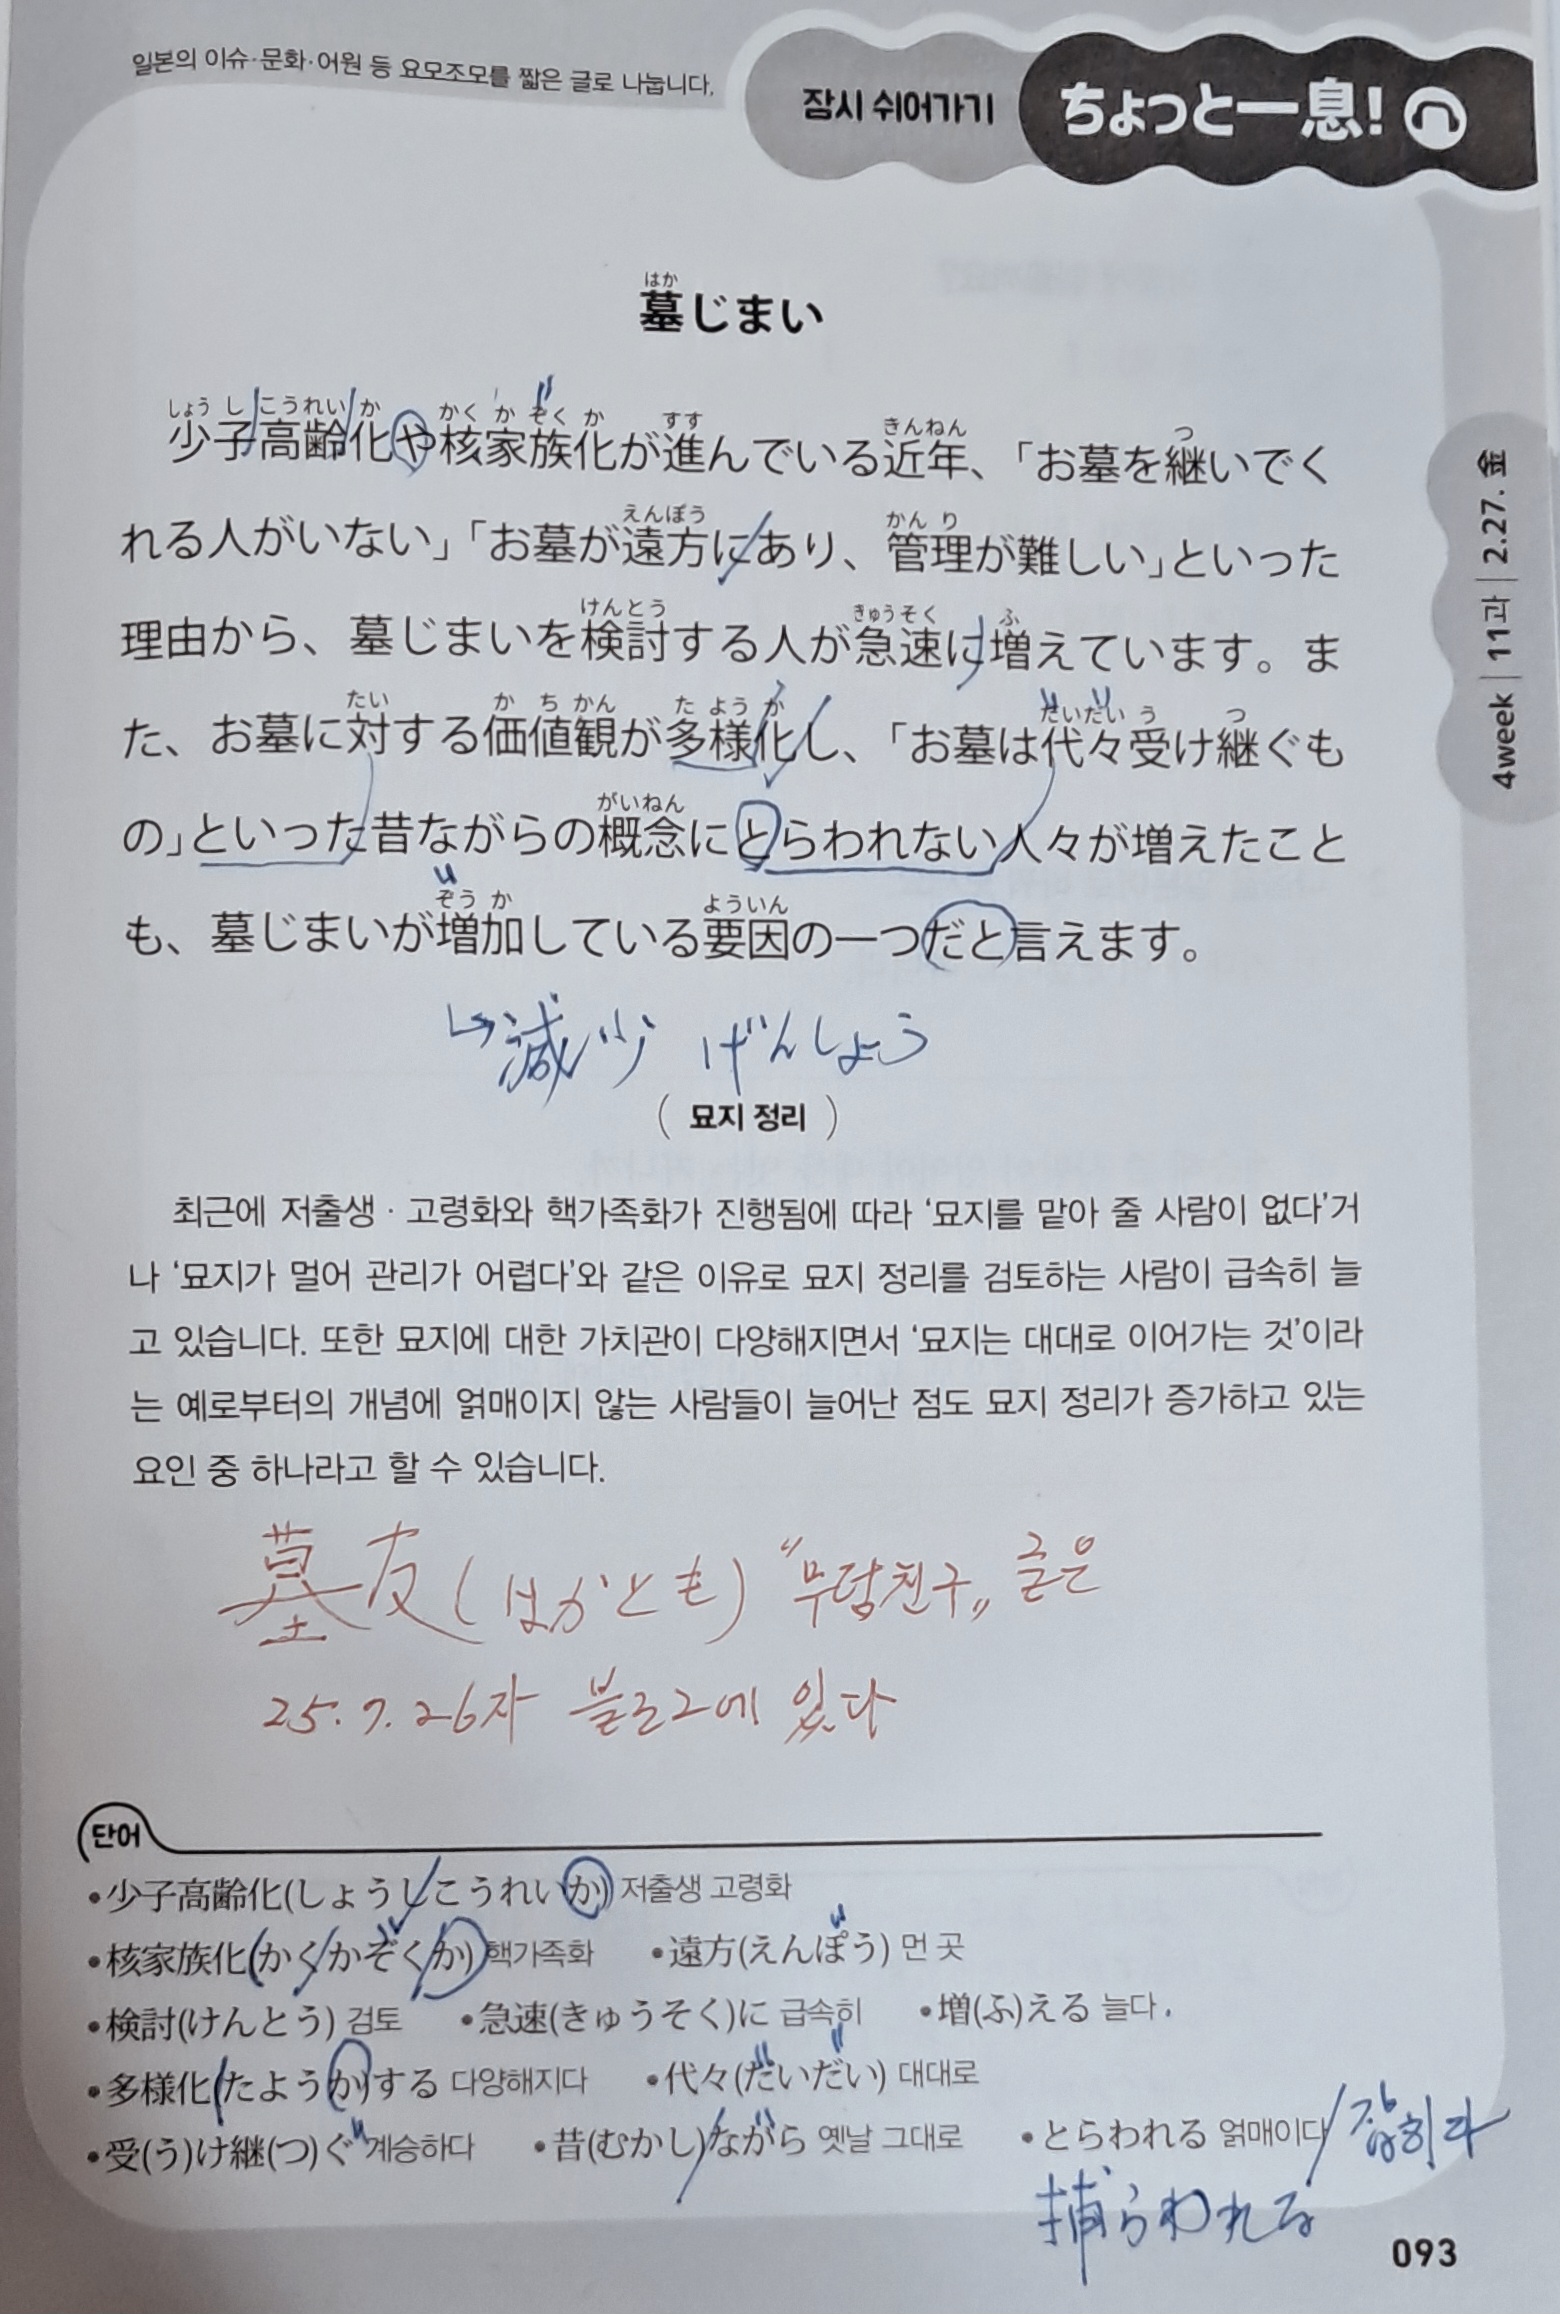 일본의 이슈·문화·어원 등 요모조모를 짧은 글로 나눕니다.
잠시 쉬어가기 ちょっと一息!
はか
墓じまい
しょう し こうれい か かく か ぞく か すす きんねん つ
少子高齢化や核家族化が進んでいる近年、「お墓を継いでく
えんぽう かん り
れる人がいない」「お墓が遠方にあり、管理が難しい」といった
けんとう きゅうそく ふ
理由から、墓じまいを検討する人が急速に増えています。ま
たい か ち かん た よう か だいだい う つ
た、お墓に対する価値観が多様化し、「お墓は代々受け継ぐも
がいねん
の」といった昔ながらの概念にとらわれない人々が増えたこと
ぞう か よういん
も、墓じまいが増加している要因の一つだと言えます。
↳減少 げんしょう
( 묘지 정리 )
최근에 저출생·고령화와 핵가족화가 진행됨에 따라 ‘묘지를 맡아 줄 사람이 없다’거
나 ‘묘지가 멀어 관리가 어렵다’와 같은 이유로 묘지 정리를 검토하는 사람이 급속히 늘
고 있습니다. 또한 묘지에 대한 가치관이 다양해지면서 ‘묘지는 대대로 이어가는 것’이라
는 예로부터의 개념에 얽매이지 않는 사람들이 늘어난 점도 묘지 정리가 증가하고 있는
요인 중 하나라고 할 수 있습니다.
墓友(はかとも) “무덤친구” 글은
25.7.26자 블로그에 있다
단어
•少子高齢化(しょうしこうれいか) 저출생 고령화
•核家族化(かくかぞくか) 핵가족화 •遠方(えんぽう) 먼 곳
•検討(けんとう) 검토 •急速(きゅうそく)に 급속히 •増(ふ)える 늘다
•多様化(たようか)する 다양해지다 •代々(だいだい) 대대로
•受(う)け継(つ)ぐ 계승하다 •昔(むかし)ながら 옛날 그대로 •とらわれる 얽매이다/잡히다
捕らわれる
4week | 11과 | 2.27. 金
093